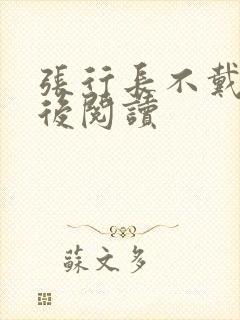 張行長不戴
後閱讀
蘇文多